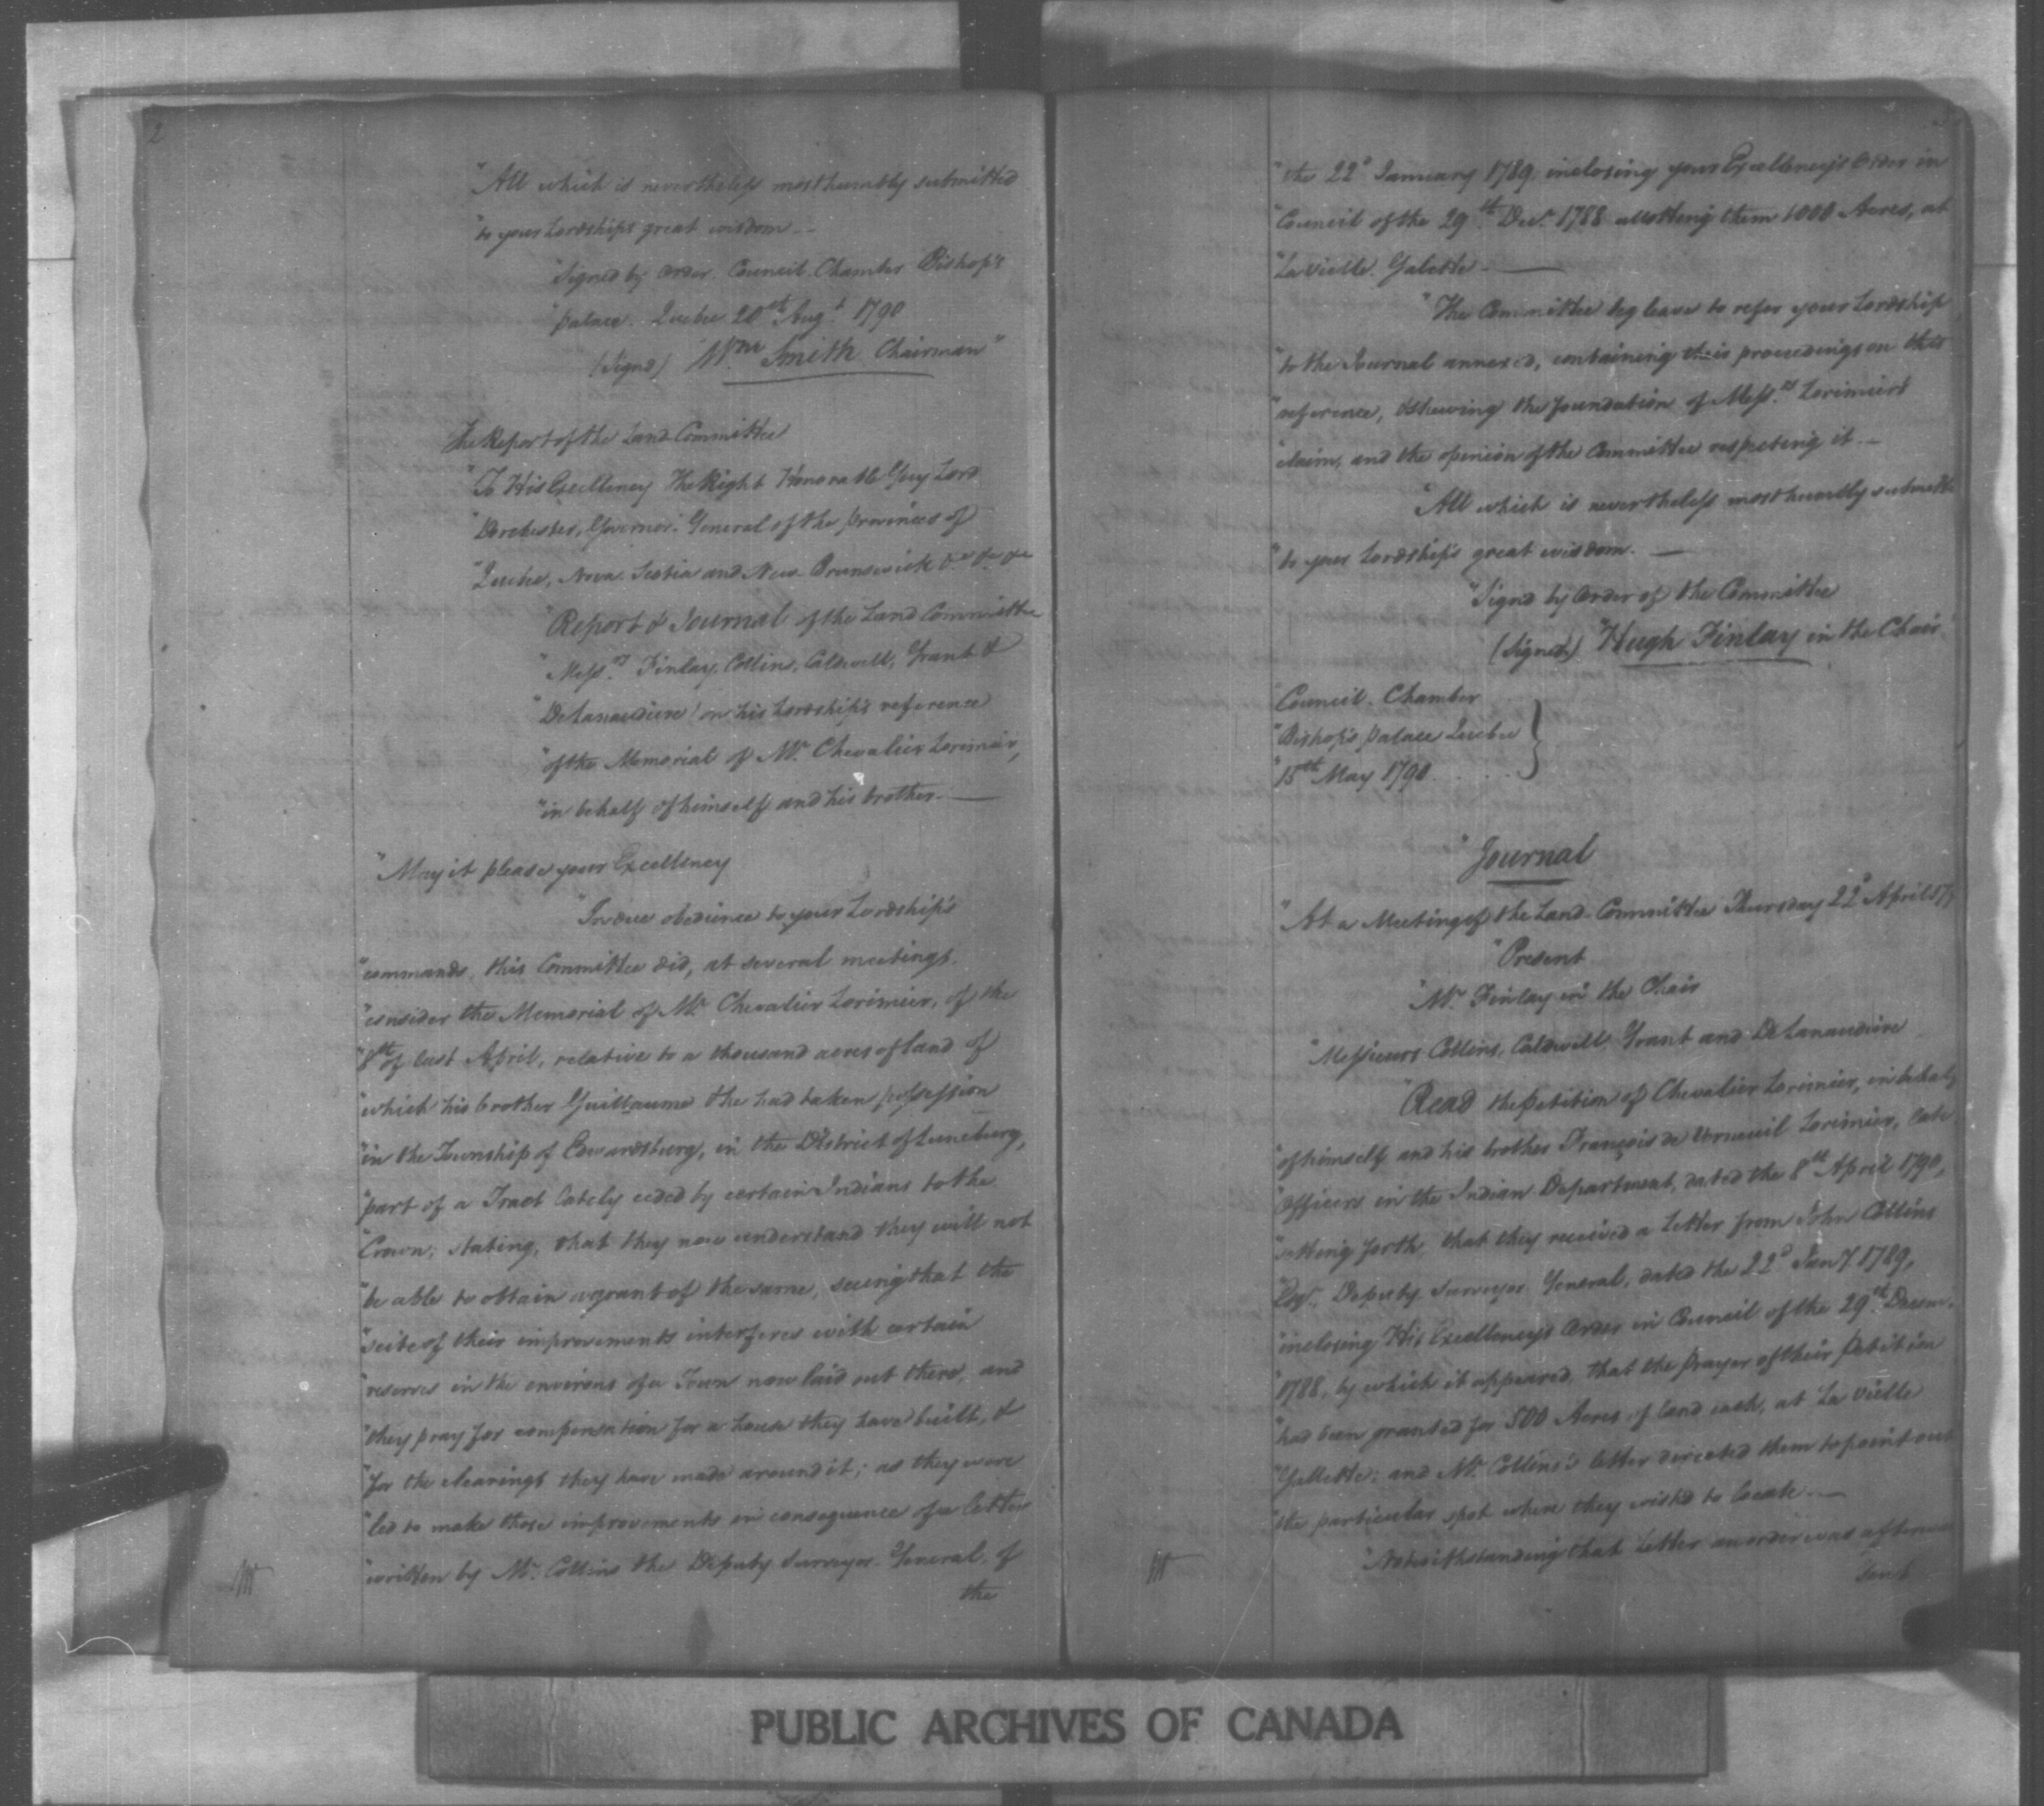 2
"All which is nevertheless most humbly submitted
"to your Lordship's great wisdom —
"Signed by order. Council Chamber Bishop's
"palace. Quebec 20th Augt 1790
(Signd) "Wm Smith Chairman"
The Report of the Land Committee
"To His Excellency The Right Honorable Guy Lord
"Dorchester, Governor General of the provinces of
"Quebec, Nova Scotia and New Brunswick &a &a &a
"Report & Journal of the Land Committee
"Messrs Finlay, Collins, Caldwell, Grant &
"DeLanaudiere) on his Lordship's reference
"of the Memorial of Mr. Chevalier Lorimier,
"in behalf of himself and his brother —
"May it please your Excellency
"In due obedience to your Lordship's
"commands, this Committee did, at several meetings
"consider the Memorial of Mr. Chevalier Lorimier, of the
"8th of last April, relative to a thousand acres of land of
"which his brother Guillaume & he had taken possession
"in the Township of Edwardsburg, in the District of Luneburg,
"part of a Tract lately ceded by certain Indians to the
"Crown; stating, that they now understand they will not
"be able to obtain a grant of the same, seeing that the
"scite of their improvements interferes with certain
"reserves in the environs of a Town now laid out there, and
"they pray for compensation for a house they have built, &
"for the clearings they have made around it; as they were
"led to make those improvements in consequence of a letter
"written by Mr. Collins the Deputy Surveyor General, of
the
3
"the 22d January 1789, inclosing your Excellency's Order in
"Council of the 29th Decr. 1788 allotting them 1000 Acres, at
"La Vielle Galette —
"The Committee beg leave to refer your Lordship
"to the Journal annexed, containing their proceedings on this
"reference, & shewing the foundation of Messrs Lorimiers
"claim, and the opinion of the Committee respecting it —
"All which is nevertheless most humbly submitted
"to your Lordship's great wisdom. —
"Signed by Order of the Committee
(Signed) "Hugh Finlay in the Chair
"Council Chamber
"Bishop's palace Quebec
"15th May 1790 . . . .
"Journal
"At a Meeting of the Land Committee Thursday 22d April 179
"Present
"Mr. Finlay in the Chair
"Messieurs Collins, Caldwell, Grant and DeLanaudiere
"Read the petition of Chevalier Lorimier, in behalf
"of himself and his brother François de Verneuil Lorimier, late
"officers in the Indian Department, dated the 8th April 1790,
"setting forth, that they received a letter from John Collins
"Esqr. Deputy Surveyor General, dated the 22d Jany 1789,
"inclosing His Excellency's Order in Council of the 29th Decem.
"1788, by which it appeared, that the prayer of their petition
"had been granted for 500 Acres of land each, at La Vielle
"Gallette; and Mr. Collins's letter directed them to point out
"the particular spot where they wish'd to locate —
"Notwithstanding that Letter an order was afterwar
"sent
PUBLIC ARCHIVES OF CANADA